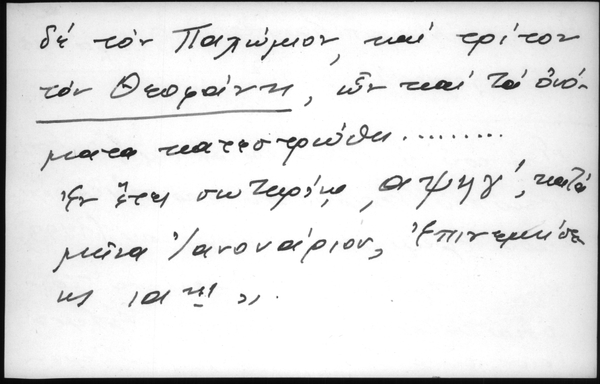 δέ τόν Παχώμιον, καί τρίτον
τόν Θεοφάνην, ὧν καί τά ὀνό-
ματα κατεστρώθη.........
Ἐν ἔτει σωτηρίῳ, ͵αψηγ΄, κατά
μῆνα Ἰανουάριον, Ἐπινεμήσε
ως ιαης ».